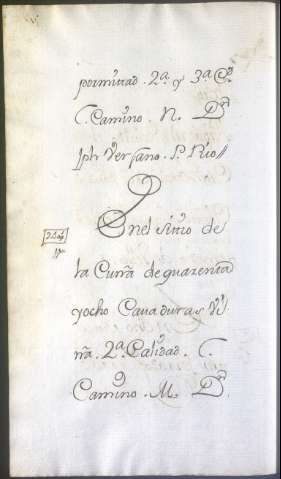 por mitad. 2ª. y 3ª. C.
C. Camino. N. Dn.
Jph Verfano. P. Rio//
En el sitio de
la Curra de quarenta
y ocho Cavaduras Vi
ña. 2ª. Calidad. C.
Camino. M. Dn.